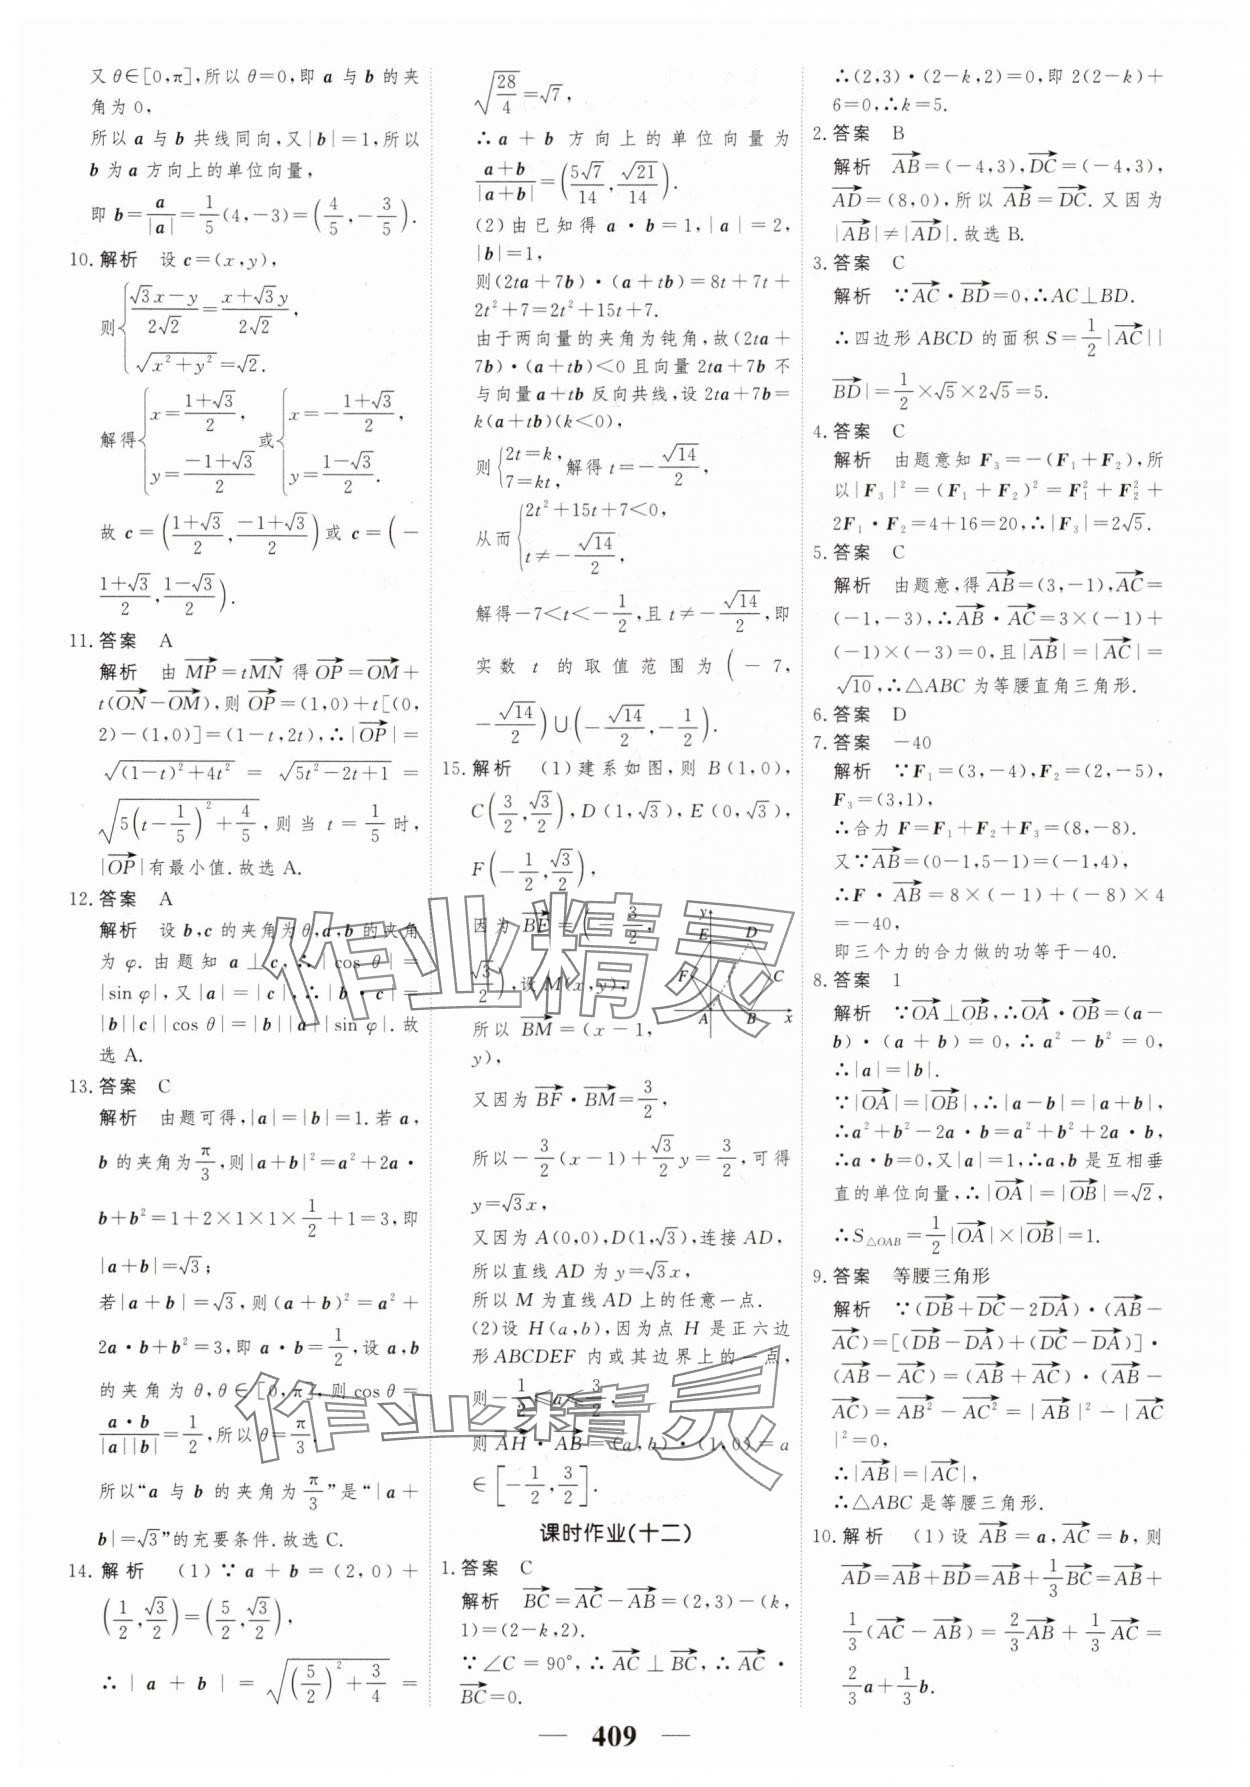 又θ∈[0,π],所以θ=0,即 a 与 b 的夹
角为 0,
所以 a 与 b 共线同向,又|b|=1,所以
b 为 a 方向上的单位向量,
即 b=a/|a|=1/5(4,-3)=(4/5,-3/5).
10.解析 设 c=(x,y),
则{(√3x-y)/(2√2)=(x+√3y)/(2√2),
√(x²+y²)=√2.
解得{x=(1+√3)/2, y=(-1+√3)/2 或{x=-(1+√3)/2, y=(1-√3)/2.
故 c=((1+√3)/2,(-1+√3)/2)或 c=(-
(1+√3)/2,(1-√3)/2).
11.答案 A
解析 由 MP→=tMN→ 得 OP→=OM→+
t(ON→-OM→),则 OP→=(1,0)+t[(0,
2)-(1,0)]=(1-t,2t),∴|OP→|=
√((1-t)²+4t²) = √(5t²-2t+1) =
√(5(t-1/5)²+4/5),则当 t=1/5 时,
|OP→|有最小值.故选 A.
12.答案 A
解析 设 b,c 的夹角为θ,a,b 的夹角
为 φ.由题知 a⊥c,∴|cos θ|=
|sin φ|,又|a|=|c|,∴|b·c|=
|b||c||cos θ|=|b||a||sin φ|.故
选 A.
13.答案 C
解析 由题可得,|a|=|b|=1.若 a,
b 的夹角为π/3,则|a+b|²=a²+2a·
b+b²=1+2×1×1×1/2+1=3,即
|a+b|=√3;
若|a+b|=√3,则(a+b)²=a²+
2a·b+b²=3,即 a·b=1/2,设 a,b
的夹角为 θ,θ∈[0,π],则 cos θ=
a·b/(|a||b|)=1/2,所以θ=π/3.
所以“a 与 b 的夹角为π/3”是“|a+
b|=√3”的充要条件.故选 C.
14.解析 (1)∵a+b=(2,0)+
(1/2,√3/2)=(5/2,√3/2),
∴|a+b|=√((5/2)²+3/4)=
√(28/4)=√7,
∴a+b 方向上的单位向量为
(a+b)/|a+b|=(5√7/14,√21/14).
(2)由已知得 a·b=1,|a|=2,
|b|=1,
则(2ta+7b)·(a+tb)=8t+7t+
2t²+7=2t²+15t+7.
由于两向量的夹角为钝角,故(2ta+
7b)·(a+tb)<0 且向量 2ta+7b 不
与向量 a+tb 反向共线,设 2ta+7b=
k(a+tb)(k<0),
则{2t=k, 7=kt, 解得 t=-√14/2,
从而{2t²+15t+7<0, t≠-√14/2,
解得-7<t<-1/2,且 t≠-√14/2,即
实数 t 的取值范围为(-7,
-√14/2)∪(-√14/2,-1/2).
15.解析 (1)建系如图,则 B(1,0),
C(3/2,√3/2),D(1,√3),E(0,√3),
F(-1/2,√3/2),
因为 BF→=(-3/2,
√3/2),设 M(x,y),
所以 BM→=(x-1,
y),
y
E D
F C
A B x
又因为 BF→·BM→=3/2,
所以-3/2(x-1)+√3/2y=3/2,可得
y=√3x,
又因为 A(0,0),D(1,√3),连接 AD,
所以直线 AD 为 y=√3x,
所以 M 为直线 AD 上的任意一点.
(2)设 H(a,b),因为点 H 是正六边
形 ABCDEF 内或其边界上的一点,
则-1/2≤a≤3/2,
则 AH→·AB→=(a,b)·(1,0)=a
∈[-1/2,3/2].
课时作业(十二)
1.答案 C
解析 BC→=AC→-AB→=(2,3)-(k,
1)=(2-k,2).
∵∠C=90°,∴AC→⊥BC→,∴AC→·
BC→=0.
∴(2,3)·(2-k,2)=0,即 2(2-k)+
6=0,∴k=5.
2.答案 B
解析 AB→=(-4,3),DC→=(-4,3),
AD→=(8,0),所以 AB→=DC→.又因为
|AB→|≠|AD→|.故选 B.
3.答案 C
解析 ∵AC→·BD→=0,∴AC⊥BD.
∴四边形 ABCD 的面积 S=1/2|AC→||
BD→|=1/2×√5×2√5=5.
4.答案 C
解析 由题意知 F₃=-(F₁+F₂),所
以|F₃|²=(F₁+F₂)²=F₁²+F₂²+
2F₁·F₂=4+16=20,∴|F₃|=2√5.
5.答案 C
解析 由题意,得 AB→=(3,-1),AC→=
(-1,-3),∴AB→·AC→=3×(-1)+
(-1)×(-3)=0,且|AB→|=|AC→|=
√10,∴△ABC 为等腰直角三角形.
6.答案 D
7.答案 -40
解析 ∵F₁=(3,-4),F₂=(2,-5),
F₃=(3,1),
∴合力 F=F₁+F₂+F₃=(8,-8).
又∵AB→=(0-1,5-1)=(-1,4),
∴F·AB→=8×(-1)+(-8)×4
=-40,
即三个力的合力做的功等于-40.
8.答案 1
解析 ∵OA→⊥OB→,∴OA→·OB→=(a-
b)·(a+b)=0,∴a²-b²=0,
∴|a|=|b|.
∵|OA→|=|OB→|,∴|a-b|=|a+b|,
∴a²+b²-2a·b=a²+b²+2a·b,
∴a·b=0,又|a|=1,∴a,b 是互相垂
直的单位向量,∴|OA→|=|OB→|=√2,
∴S△OAB=1/2|OA→|×|OB→|=1.
9.答案 等腰三角形
解析 ∵(DB→+DC→-2DA→)·(AB→-
AC→)=[(DB→-DA→)+(DC→-DA→)]·
(AB→-AC→)=(AB→+AC→)·(AB→-
AC→)=AB→²-AC→²=|AB→|²-|AC→
|²=0,
∴|AB→|=|AC→|,
∴△ABC 是等腰三角形.
10.解析 (1)设 AB→=a,AC→=b,则
AD→=AB→+BD→=AB→+1/3BC→=AB→+
1/3(AC→-AB→)=2/3AB→+1/3AC→=
2/3a+1/3b.
作业精灵
作业精灵
— 409 —